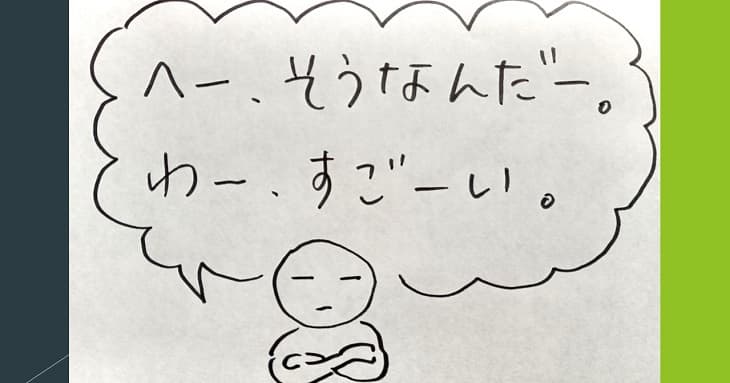 へー、そうなんだー。
わー、すごーい。